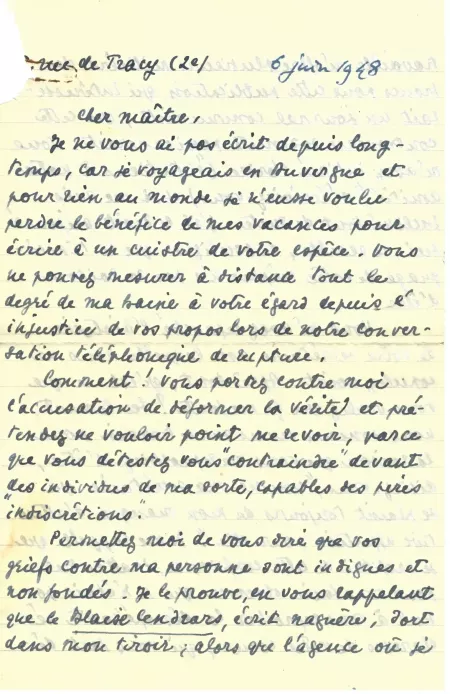 rue de Tracy (2e) 6 juin 1948
Cher maître,
Je ne vous ai pas écrit depuis long-
temps, car je voyageais en Auvergne et
pour rien au monde je n'eusse voulu
perdre le bénéfice de mes vacances pour
écrire à un cuistre de votre espèce. Vous
ne pouvez mesurer à distance tout le
degré de ma haine à votre égard depuis l'
injustice de vos propos lors de notre conver-
sation téléphonique de rupture.
Comment ! vous portez contre moi
l'accusation de déformer la vérité et pré-
tendez ne vouloir point me revoir, parce
que vous détestez vous "contraindre" devant
des individus de ma sorte, capables des pires
"indiscrétions".
Permettez-moi de vous dire que vos
griefs contre ma personne sont indignes et
non fondés. Je le prouve, en vous rappelant
que le Blaise Cendrars, écrit naguère, dort
dans mon tiroir ; alors que l'agence où je